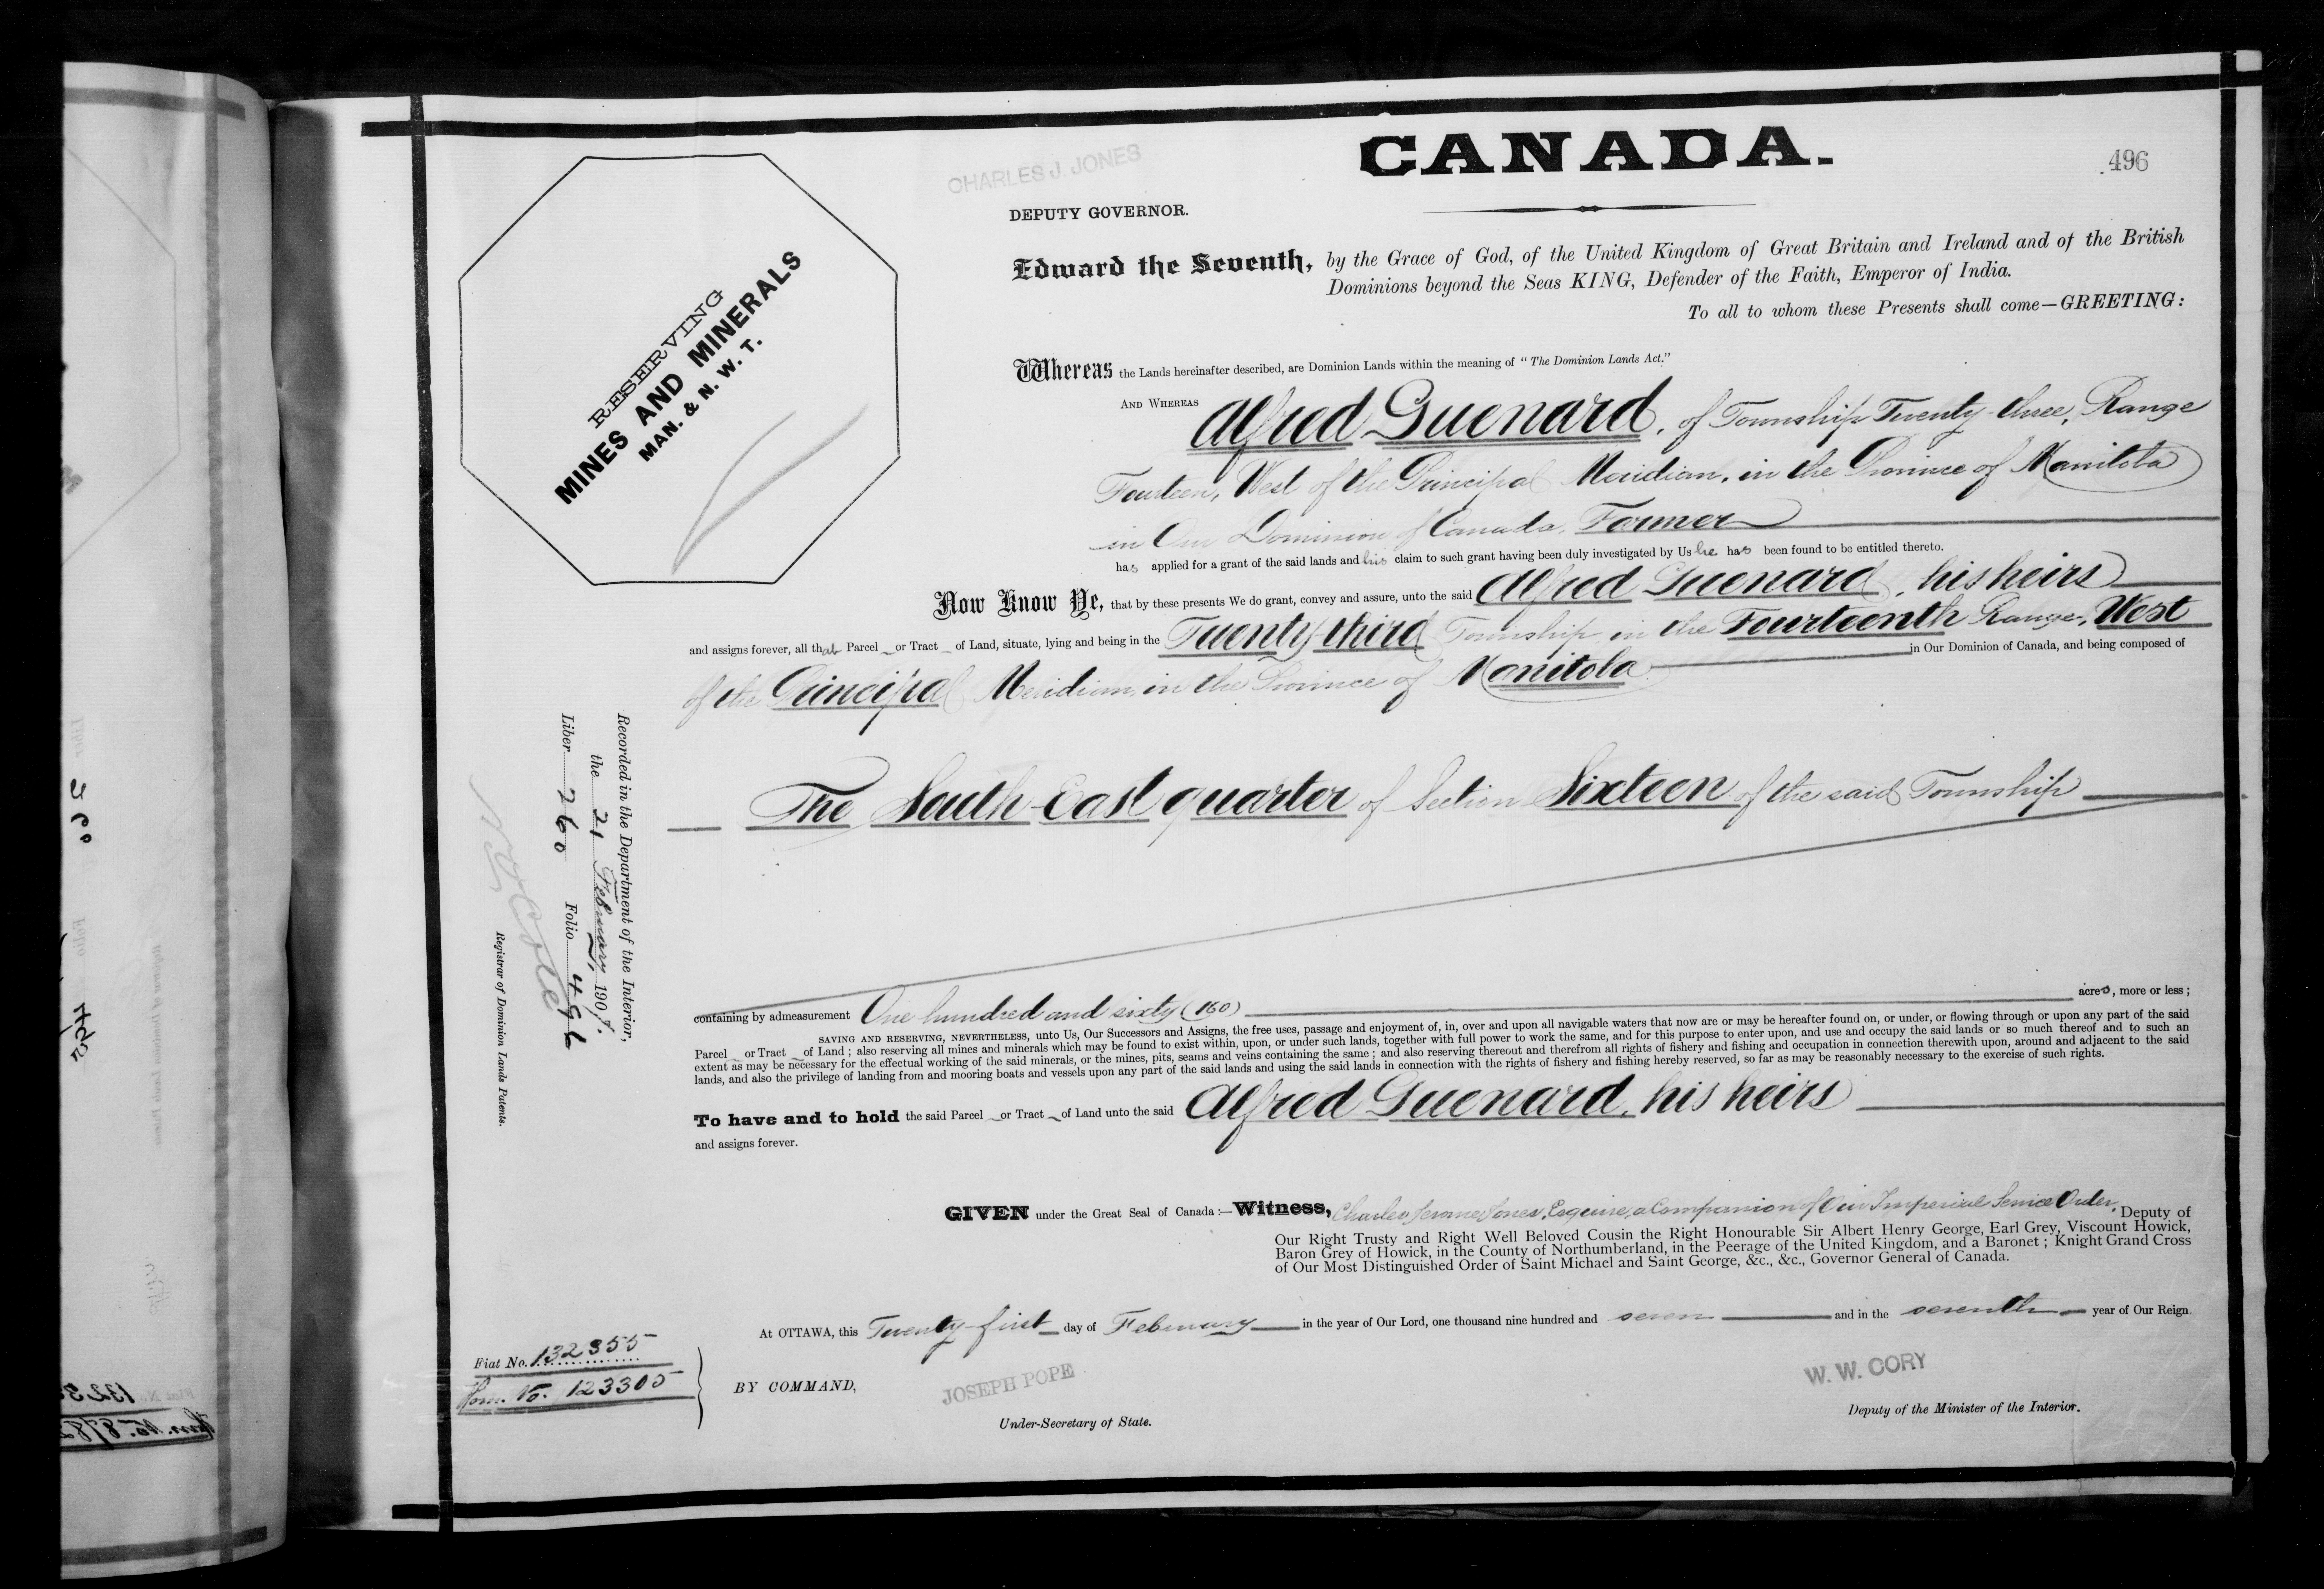 CANADA.
496
CHARLES J. JONES
DEPUTY GOVERNOR.
RESERVING
MINES AND MINERALS
MAN. & N. W. T.
Edward the Seventh, by the Grace of God, of the United Kingdom of Great Britain and Ireland and of the British
Dominions beyond the Seas KING, Defender of the Faith, Emperor of India.
To all to whom these Presents shall come—GREETING:
Whereas the Lands hereinafter described, are Dominion Lands within the meaning of "The Dominion Lands Act."
AND WHEREAS Alfred Guenard, of Township Twenty-three, Range
Fourteen, West of the Principal Meridian, in the Province of Manitoba
in Our Dominion of Canada, Farmer
has applied for a grant of the said lands and his claim to such grant having been duly investigated by Us he has been found to be entitled thereto.
Now Know Ye, that by these presents We do grant, convey and assure, unto the said Alfred Guenard, his heirs
and assigns forever, all that Parcel or Tract of Land, situate, lying and being in the Twenty-third Township, in the Fourteenth Range, West
of the Principal Meridian, in the Province of Manitoba in Our Dominion of Canada, and being composed of
The South-East quarter of Section Sixteen of the said Township
containing by admeasurement One hundred and sixty (160) acres, more or less;
SAVING AND RESERVING, NEVERTHELESS, unto Us, Our Successors and Assigns, the free uses, passage and enjoyment of, in, over and upon all navigable waters that now are or may be hereafter found on, or under, or flowing through or upon any part of the said
Parcel or Tract of Land; also reserving all mines and minerals which may be found to exist within, upon, or under such lands, together with full power to work the same, and for this purpose to enter upon, and use and occupy the said lands or so much thereof and to such an
extent as may be necessary for the effectual working of the said minerals, or the mines, pits, seams and veins containing the same; and also reserving thereout and therefrom all rights of fishery and fishing and occupation in connection therewith upon, around and adjacent to the said
lands, and also the privilege of landing from and mooring boats and vessels upon any part of the said lands and using the said lands in connection with the rights of fishery and fishing hereby reserved, so far as may be reasonably necessary to the exercise of such rights.
To have and to hold the said Parcel or Tract of Land unto the said Alfred Guenard, his heirs
and assigns forever.
GIVEN under the Great Seal of Canada:—Witness, Charles Jerome Jones, Esquire, a Companion of Our Imperial Service Order, Deputy of
Our Right Trusty and Right Well Beloved Cousin the Right Honourable Sir Albert Henry George, Earl Grey, Viscount Howick,
Baron Grey of Howick, in the County of Northumberland, in the Peerage of the United Kingdom, and a Baronet; Knight Grand Cross
of Our Most Distinguished Order of Saint Michael and Saint George, &c., &c., Governor General of Canada.
At OTTAWA, this Twenty-first day of February in the year of Our Lord, one thousand nine hundred and seven and in the seventh year of Our Reign.
BY COMMAND,
JOSEPH POPE
Under-Secretary of State.
W. W. CORY
Deputy of the Minister of the Interior.
Fiat No. 132355
Hom. No. 123305
Recorded in the Department of the Interior,
the 21 February, 1907.
Liber 260 Folio 496
Registrar of Dominion Lands Patents.